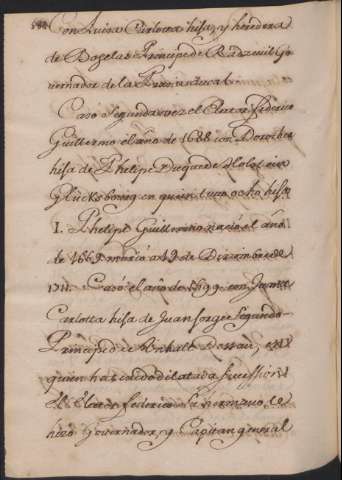 Con Luisa Carlotta hija, y heredera
de Bogelao Principe de Radzevil Go-
vernador de la Prusia Ducal.
Caso segunda vez el Elector Federico
Guillermo el año de 1688 con Dorothea
hija de Phelipe Duque de Holstein
Glucksbourg en quien tuvo ocho hijos
I. Phelipe Guillermo nació el año
de 1669 murió a 19 de Diziembre de
1711. Casó el año de 1699 con Juana
Carlotta hija de Juan Jorge Segundo
Principe de Anhalt Dessau, en
quien ha sido dilatada succession
el Elector Federico su hermano, le
hizo Governador, y Capitan general